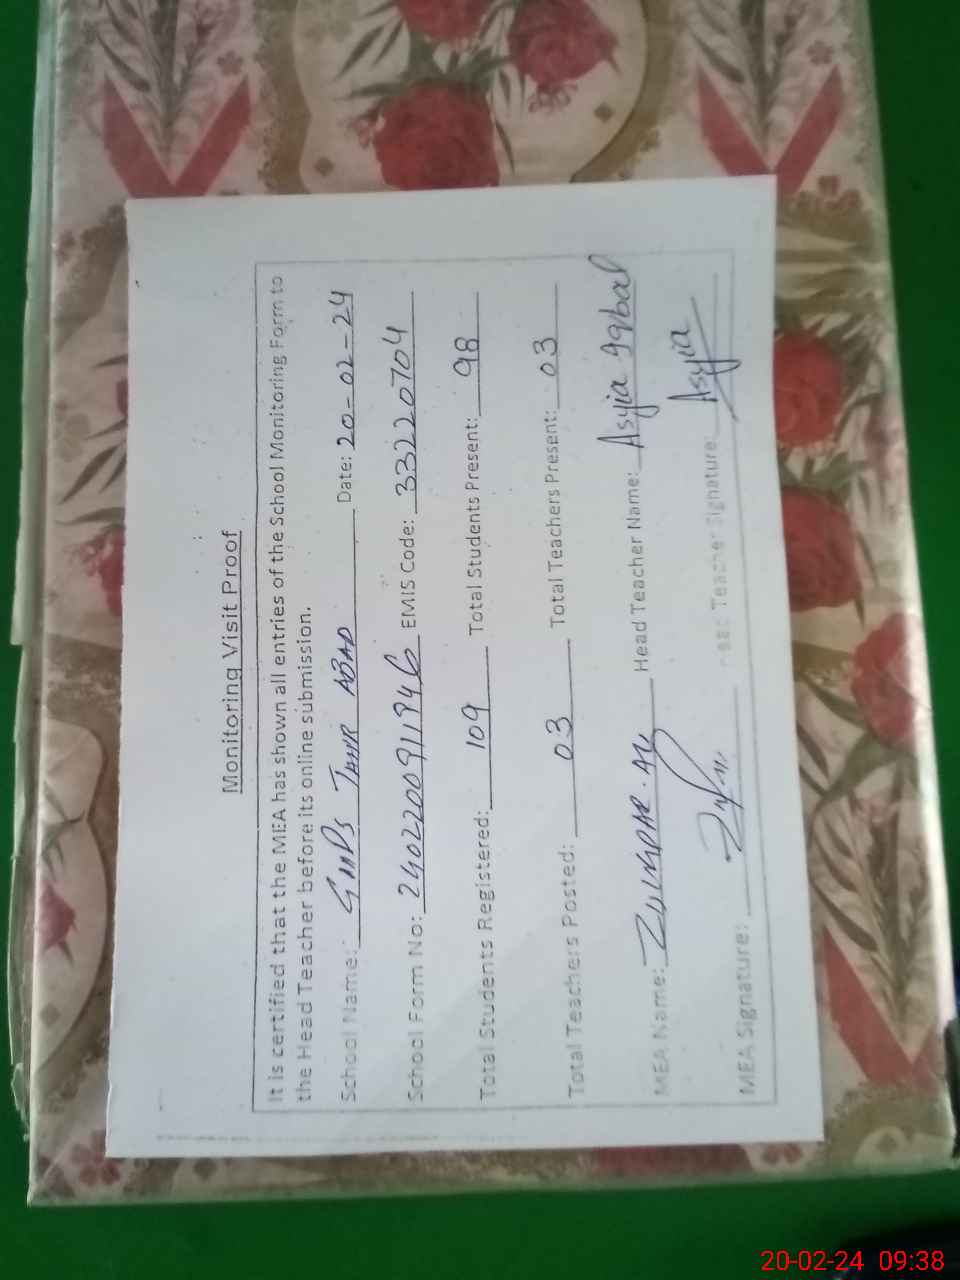 Monitoring Visit Proof
It is certified that the MEA has shown all entries of the School Monitoring Form to
the Head Teacher before its online submission.
School Name: GMPS TAHIR ABAD Date: 20-02-24
School Form No: EMIS Code: 33220704
Total Students Registered: 109 Total Students Present: 98
Total Teachers Posted: 03 Total Teachers Present: 03
MEA Name: ZULIFQAR. ALI Head Teacher Name: Asyia Iqbal
MEA Signature: Head Teacher Signature: Asyia
20-02-24 09:38